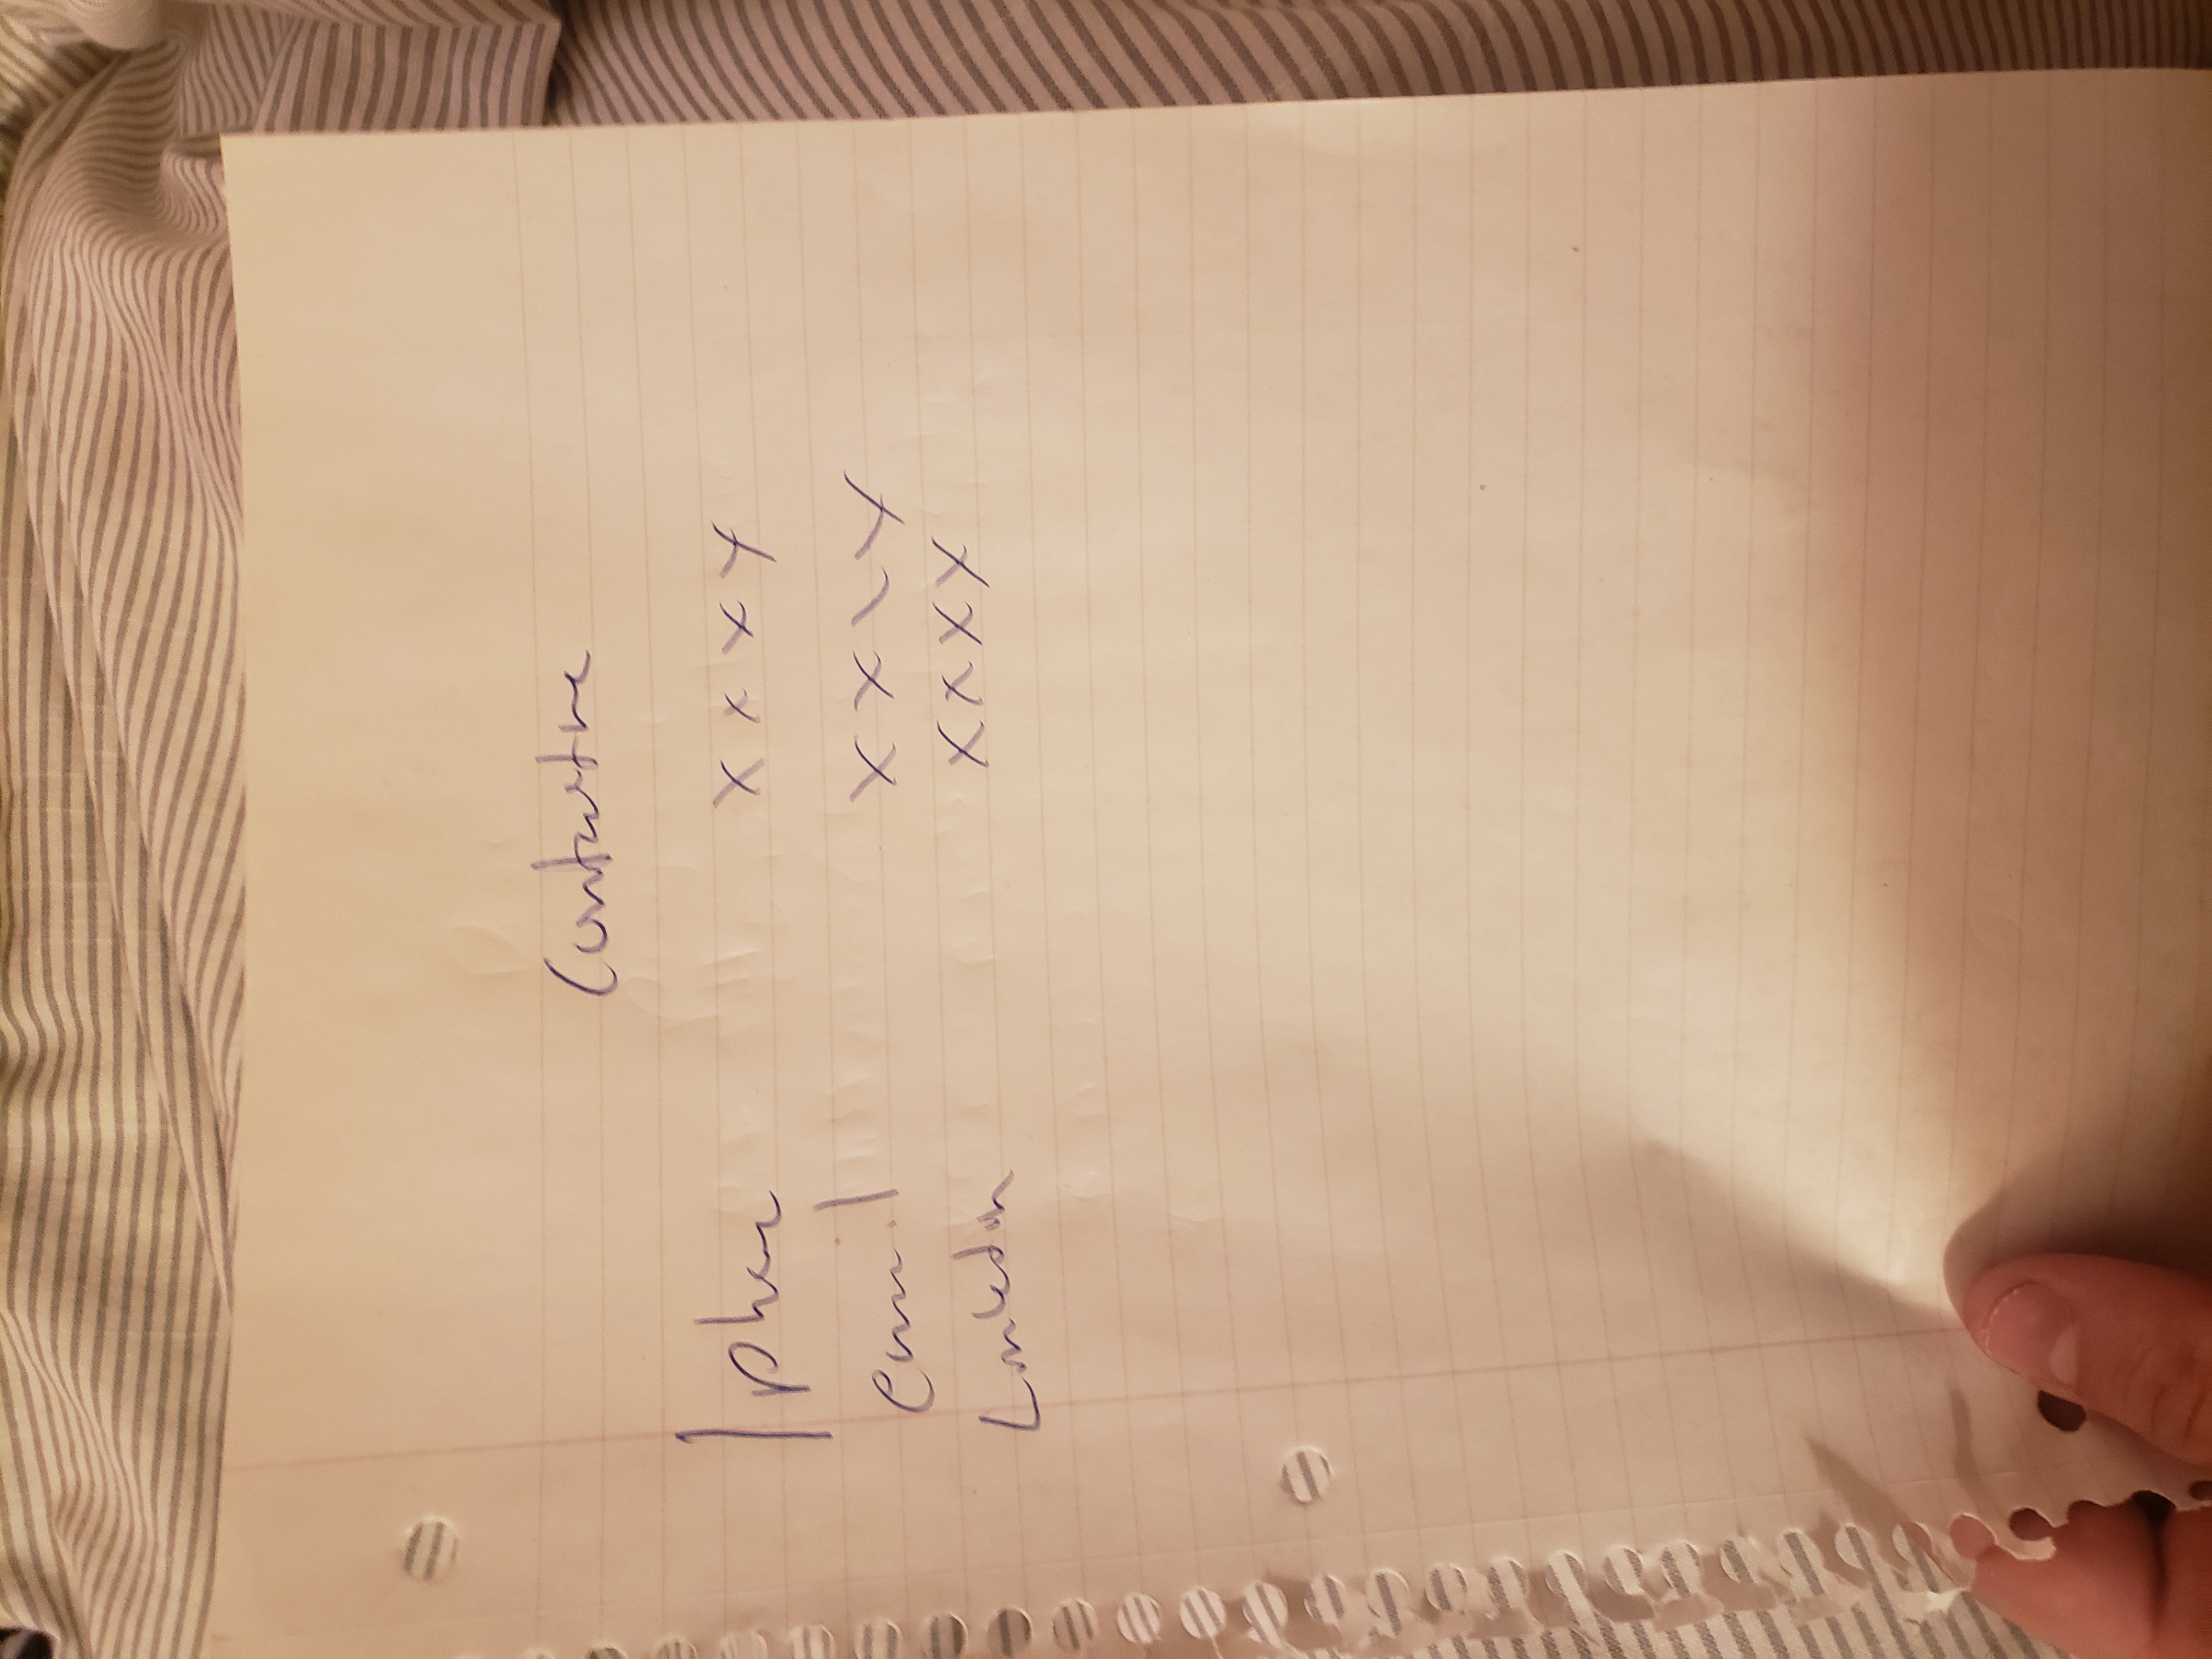 Contact me
phone xxxx
email xxxx
Linkedin xxxx